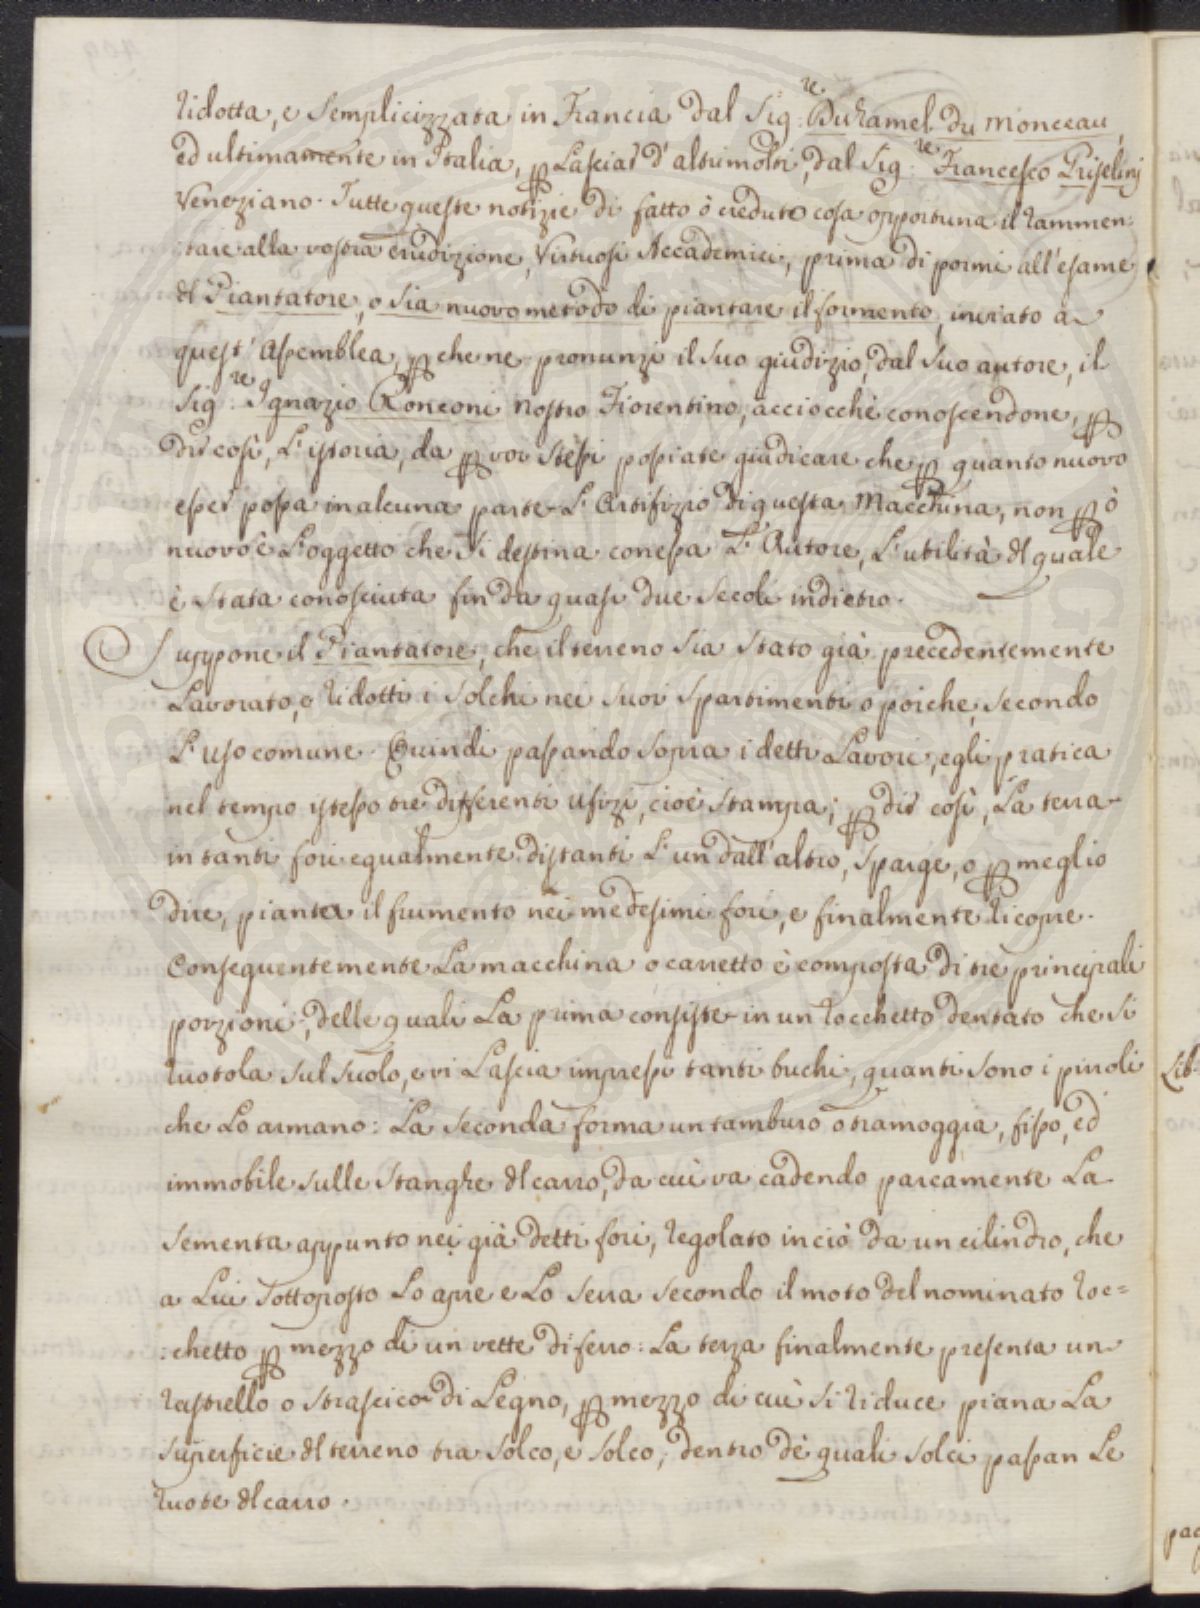 ridotta, e semplicizzata in Francia dal Sig:re Duhamel du Monceau,
ed ultimamente in Italia, p lasciar d'altri molti, dal Sig:re Francesco Griselini
Veneziano. Tutte queste notizie di fatto ò creduto cosa opportuna il rammen=
:tare alla vostra erudizione, Virtuosi Accademici, prima di pormi all'esame
dl Piantatore, o sia nuovo metodo di piantare il formento, inviato a
quest'Assemblea, p che ne pronunzi il suo giudizio, dal suo autore, il
Sig:re Ignazio Ronconi nostro Fiorentino, acciocchè conoscendone, p
dir così, l'istoria, da p voi stessi possiate giudicare che p quanto nuovo
esser possa in alcuna parte l'Artifizio di questa Macchina, non p ò
nuovo è l'oggetto che si destina con essa l'Autore, l'utilità dl quale
è stata conosciuta fin da quasi due secoli indietro.
Suppone il Piantatore, che il terreno sia stato già precedentemente
lavorato, e ridotti i solchi nei suoi spartimenti o porche, secondo
l'uso comune. Quindi passando sopra i detti lavori, egli pratica
nel tempo istesso tre differenti ufizi, cioè stampa, p dir così, la terra
in tanti fori egualmente distanti l'un dall'altro, sparge, o p meglio
dire, pianta il frumento nei medesimi fori, e finalmente ricopre.
Conseguentemente la macchina o carretto è composta di tre principali
porzioni, delle quali la prima consiste in un rocchetto dentato che si
ruotola sul suolo, e vi lascia impressi tanti buchi, quanti sono i piuoli
che lo armano: la seconda forma un tamburo o tramoggia, fisso, ed
immobile sulle stanghe dl carro, da cui va cadendo parcamente la
sementa appunto nei già detti fori, regolato in ciò da un cilindro, che
a lui sottoposto lo apre e lo serra secondo il moto del nominato roc=
:chetto p mezzo di un vette di ferro: la terza finalmente presenta un
rastrello o strascico di legno, p mezzo di cui si riduce piana la
superficie dl terreno tra solco, e solco, dentro dè quali solci passan le
ruote dl carro.
Lib.
pag